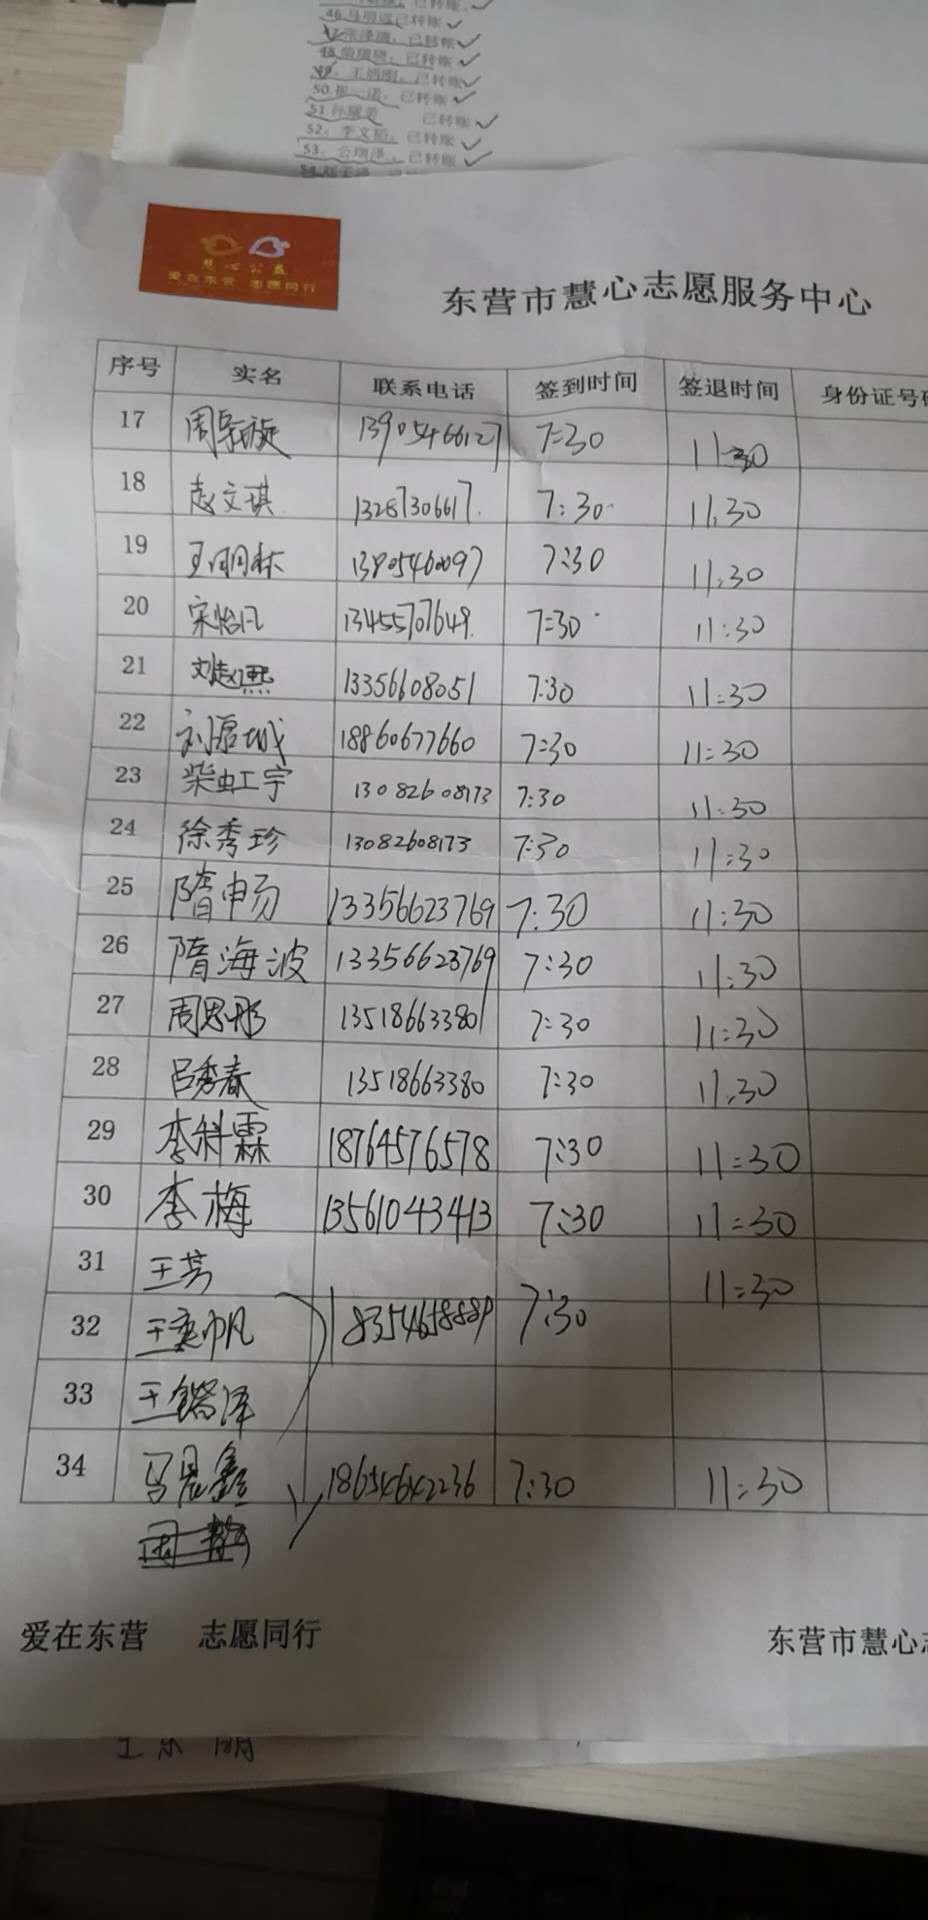 46.马明远已转账✓
已转账✓
已转账✓
已转账✓
50. 已转账✓
51. 已转账✓
52：李文韬，已转账✓
53、公瑞泽、已转账✓
慧心公益
爱在东营 志愿同行
东营市慧心志愿服务中心
序号 实名 联系电话 签到时间 签退时间 身份证号
17 13905466127 7:30 11:30
18 赵文琪 13287306617 7:30 11:30
19 王明林 13905460097 7:30 11:30
20 宋怡凡 13455707649 7:30 11:30
21 刘赵熙 13356608051 7:30 11:30
22 18860677660 7:30 11:30
23 柴虹宇 13082608173 7:30 11:30
24 徐秀珍 13082608173 7:30 11:30
25 隋申易 13356623769 7:30 11:30
26 隋海波 13356623769 7:30 11:30
27 周思彤 13518663380 7:30 11:30
28 吕秀春 13518663380 7:30 11:30
29 李科霖 18764576578 7:30 11:30
30 李梅 13561043413 7:30 11:30
31 王芳 11:30
32 王奕帆 18354658889 7:30
33 王锴泽
34 马晨鑫 18654642236 7:30 11:30
爱在东营 志愿同行
东营市慧心